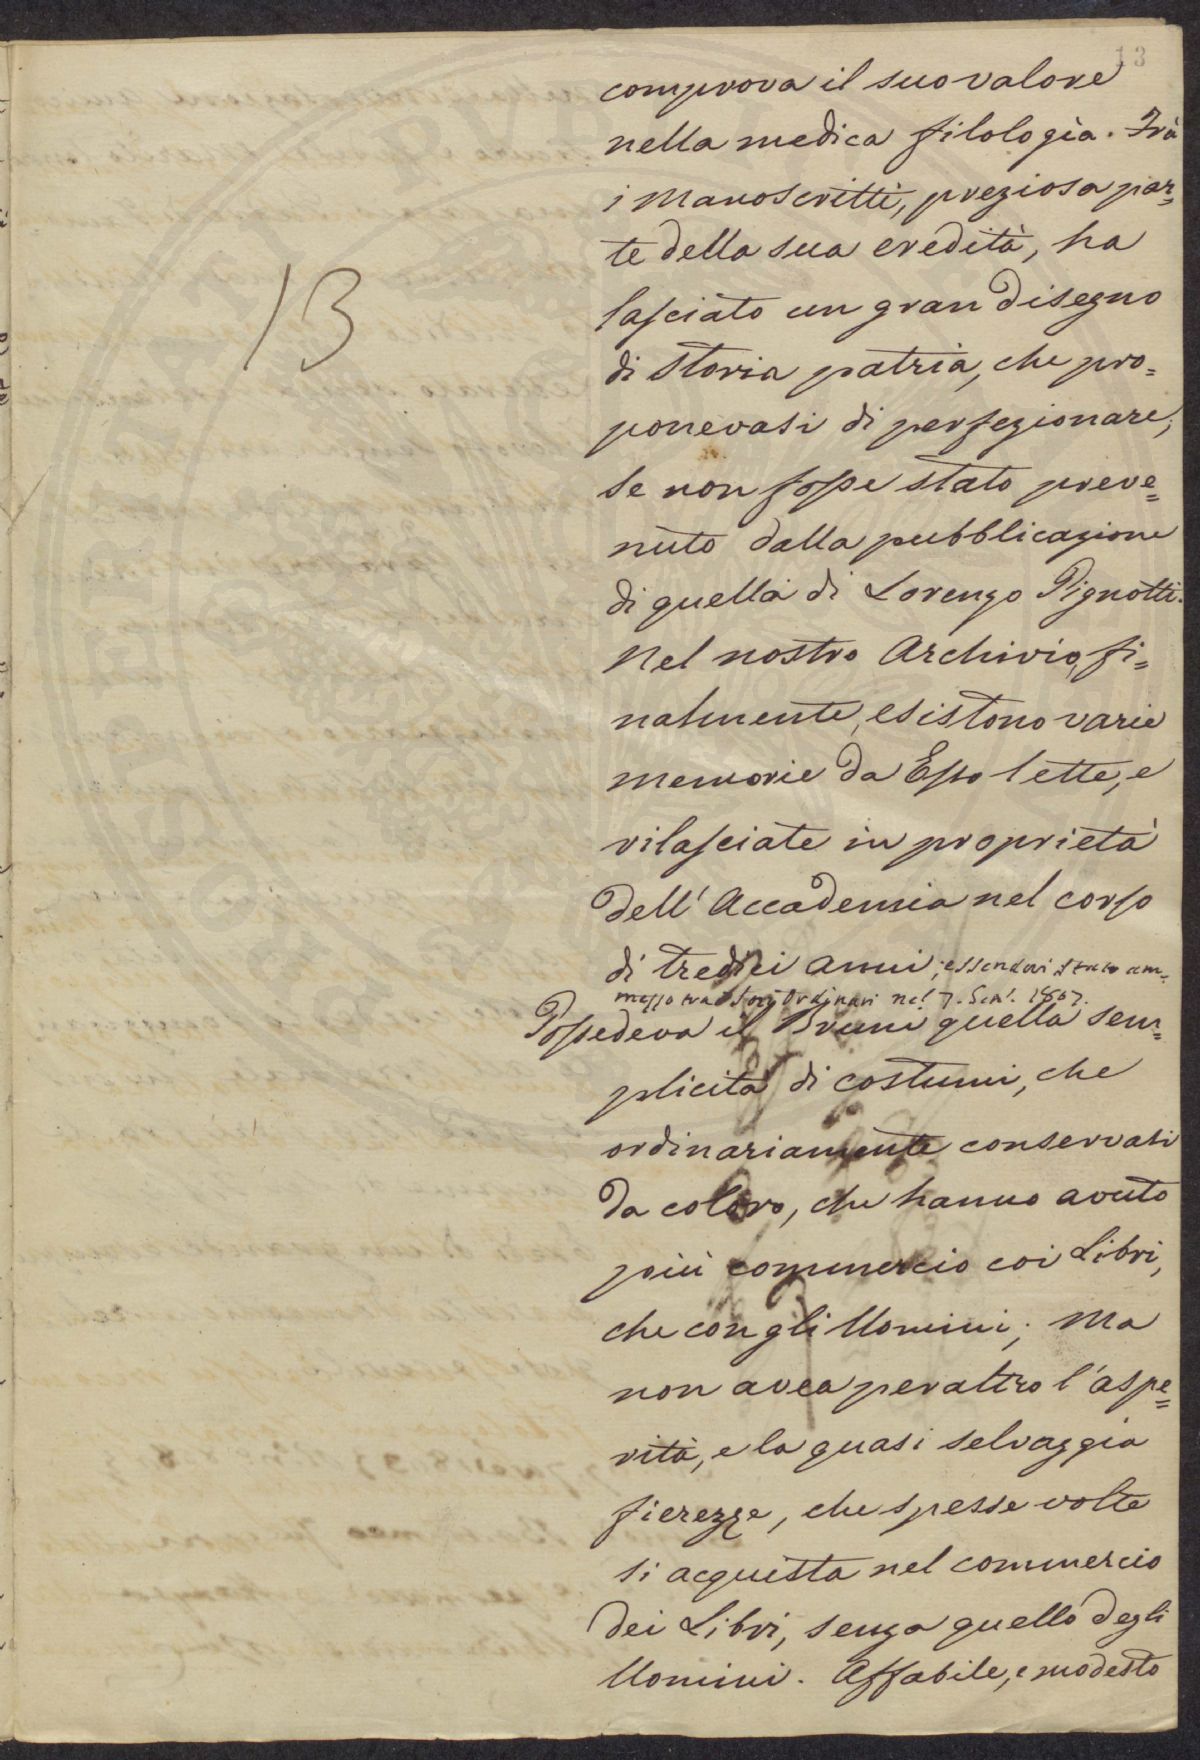 13
comprova il suo valore
nella medica filologia. Frà
i Manoscritti, preziosa par=
te della sua eredità, ha
lasciato un gran disegno
di Storia patria, che pro=
ponevasi di perfezionare,
se non fosse stato preve=
nuto dalla pubblicazione
di quella di Lorenzo Pignotti.
Nel nostro Archivio, fi=
nalmente, esistono varie
memorie da Esso lette, e
rilasciate in proprietà
dell'Accademia nel corso
di tredici anni; essendovi stato am=
messo tra i Socj Ordinari nel 7. Set. 1807.
Possedeva il Bruni quella sem=
plicità di costumi, che
ordinariamente conservasi
da coloro, che hanno avuto
più commercio coi Libri,
che con gli Uomini; Ma
non avea peraltro l'aspe=
rità, e la quasi selvaggia
fierezze, che spesse volte
si acquista nel commercio
dei Libri, senza quello degli
Uomini. Affabile, e modesto
13